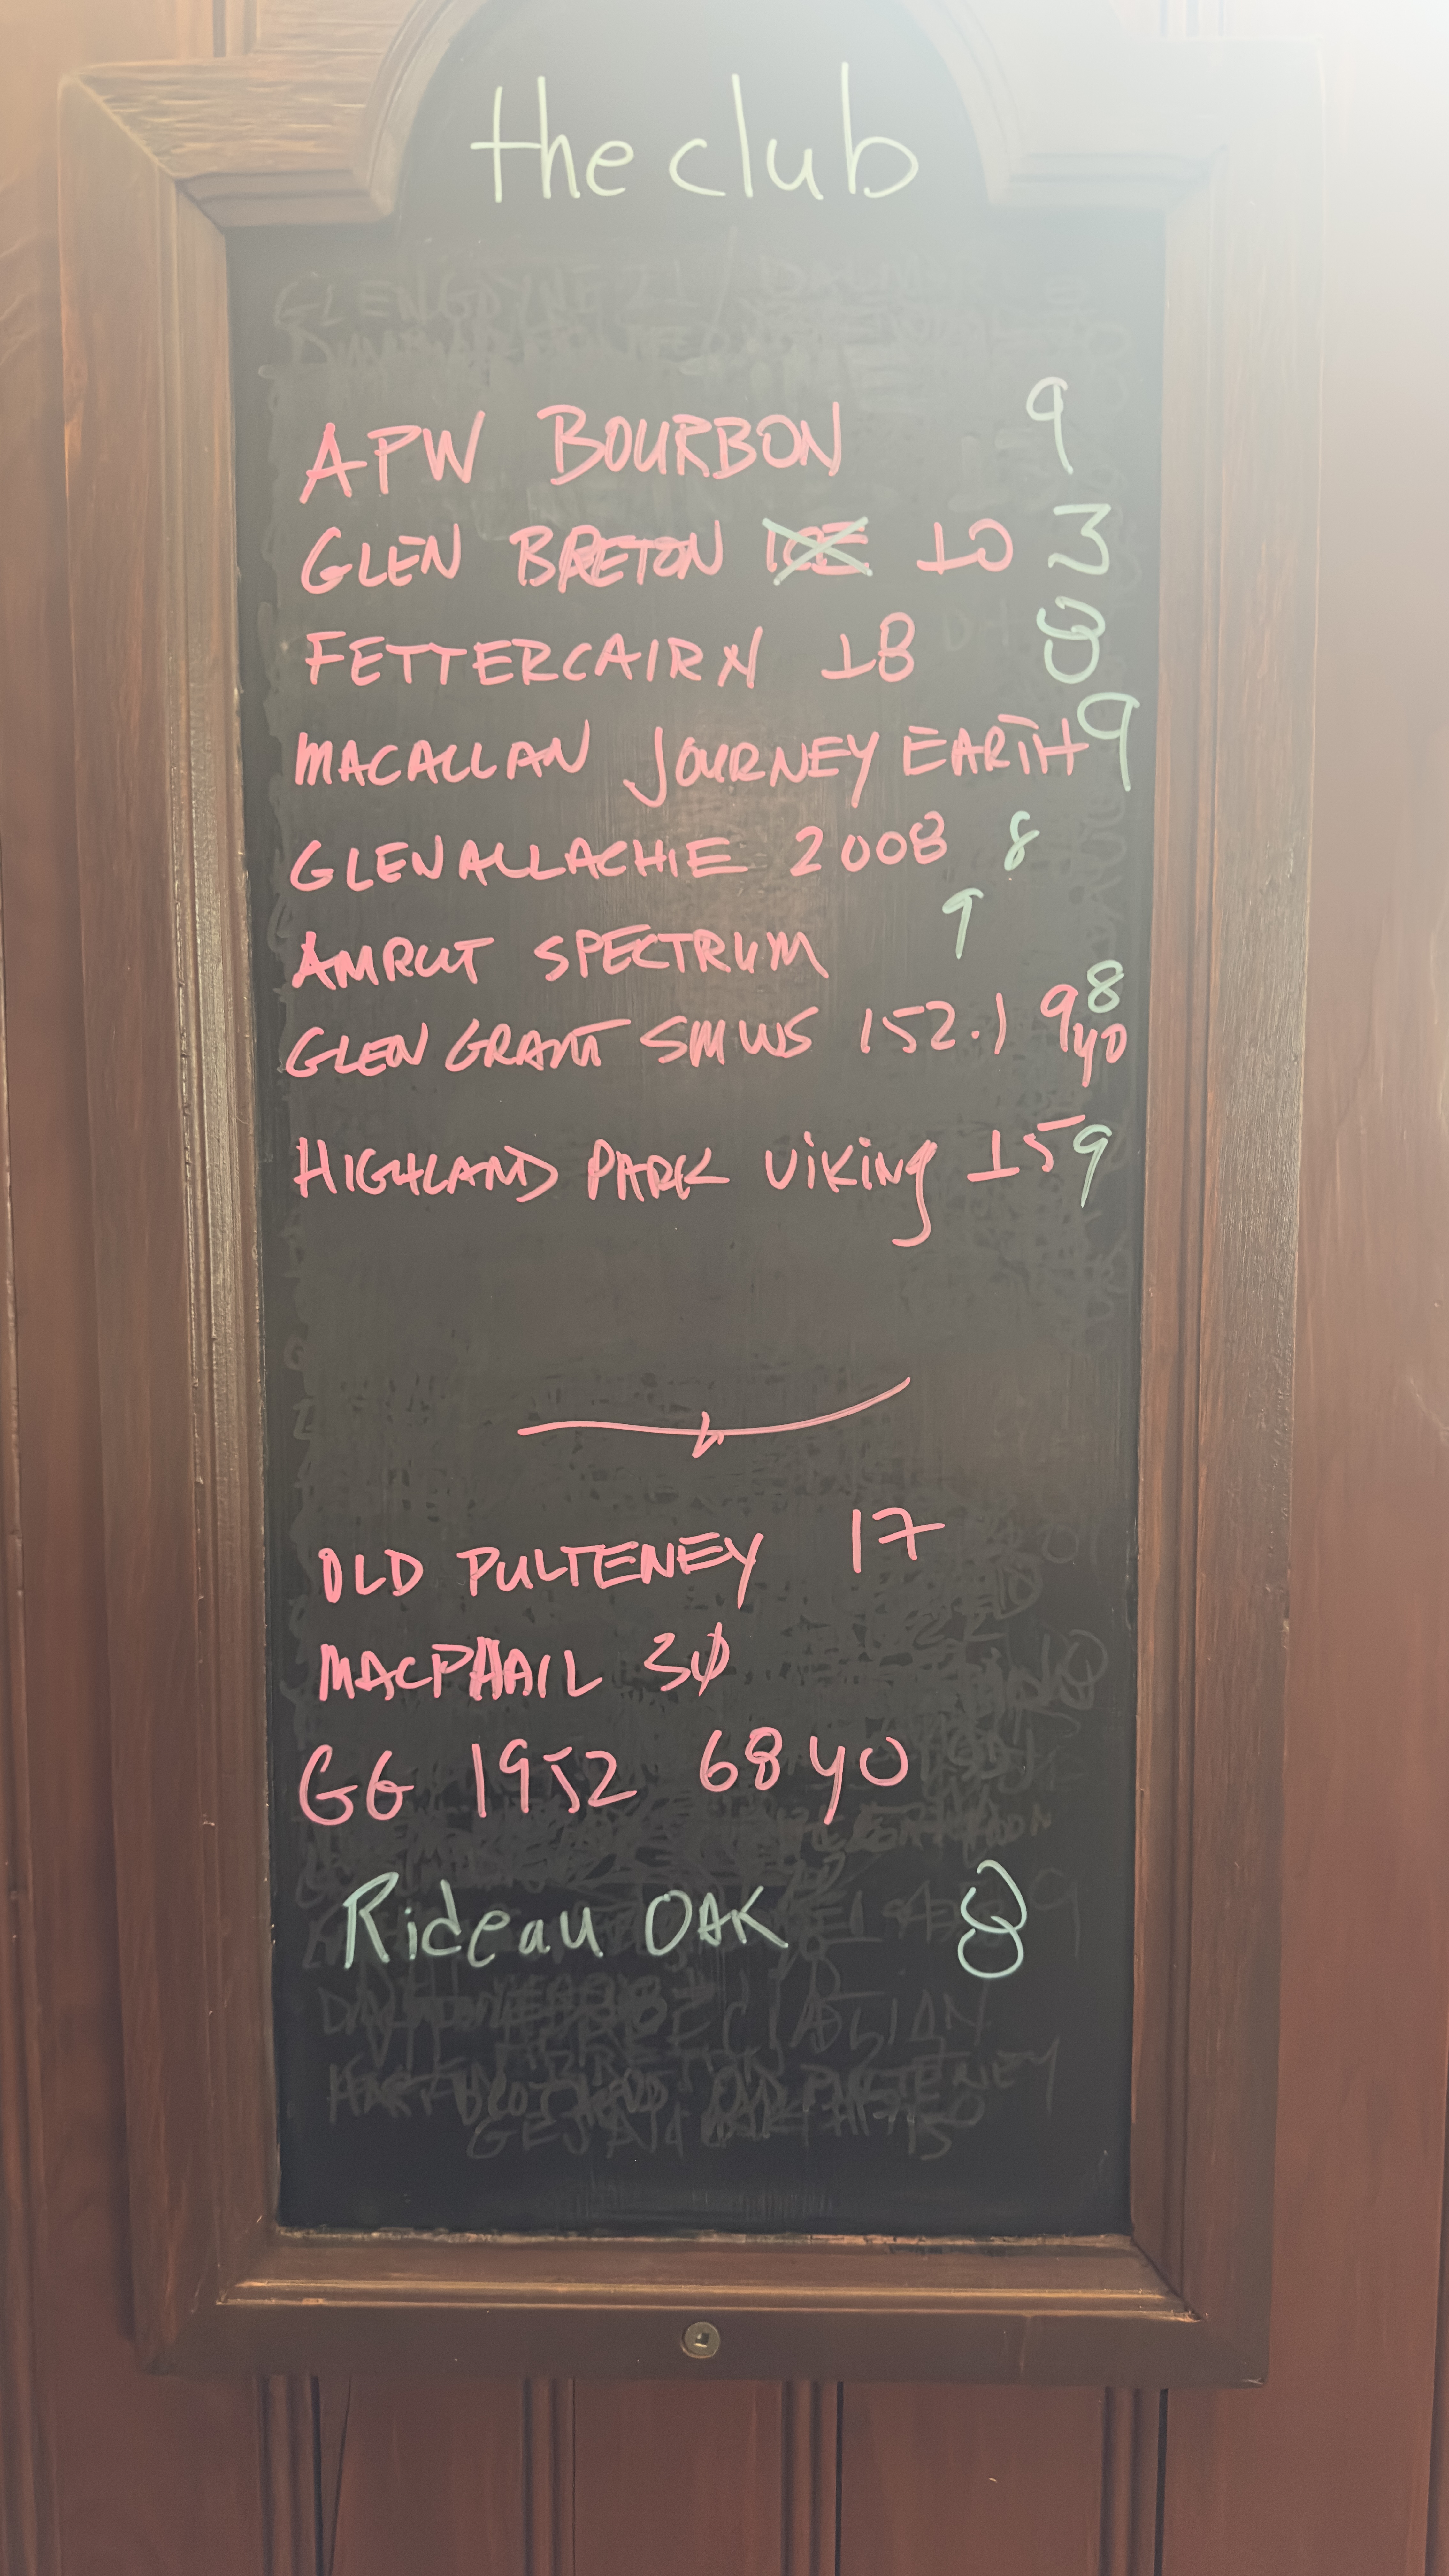 the club
APW BOURBON 9
GLEN BRETON ICE 10 3
FETTERCAIRN 18 8
MACALLAN JOURNEY EARTH 9
GLENALLACHIE 2008 8
AMRUT SPECTRUM 9
GLEN GRANT SMWS 152.1 9yo 8
HIGHLAND PARK VIKING 15 9
OLD PULTENEY 17
MACPHAIL 30
GG 1952 68 yo
Rideau OAK 8